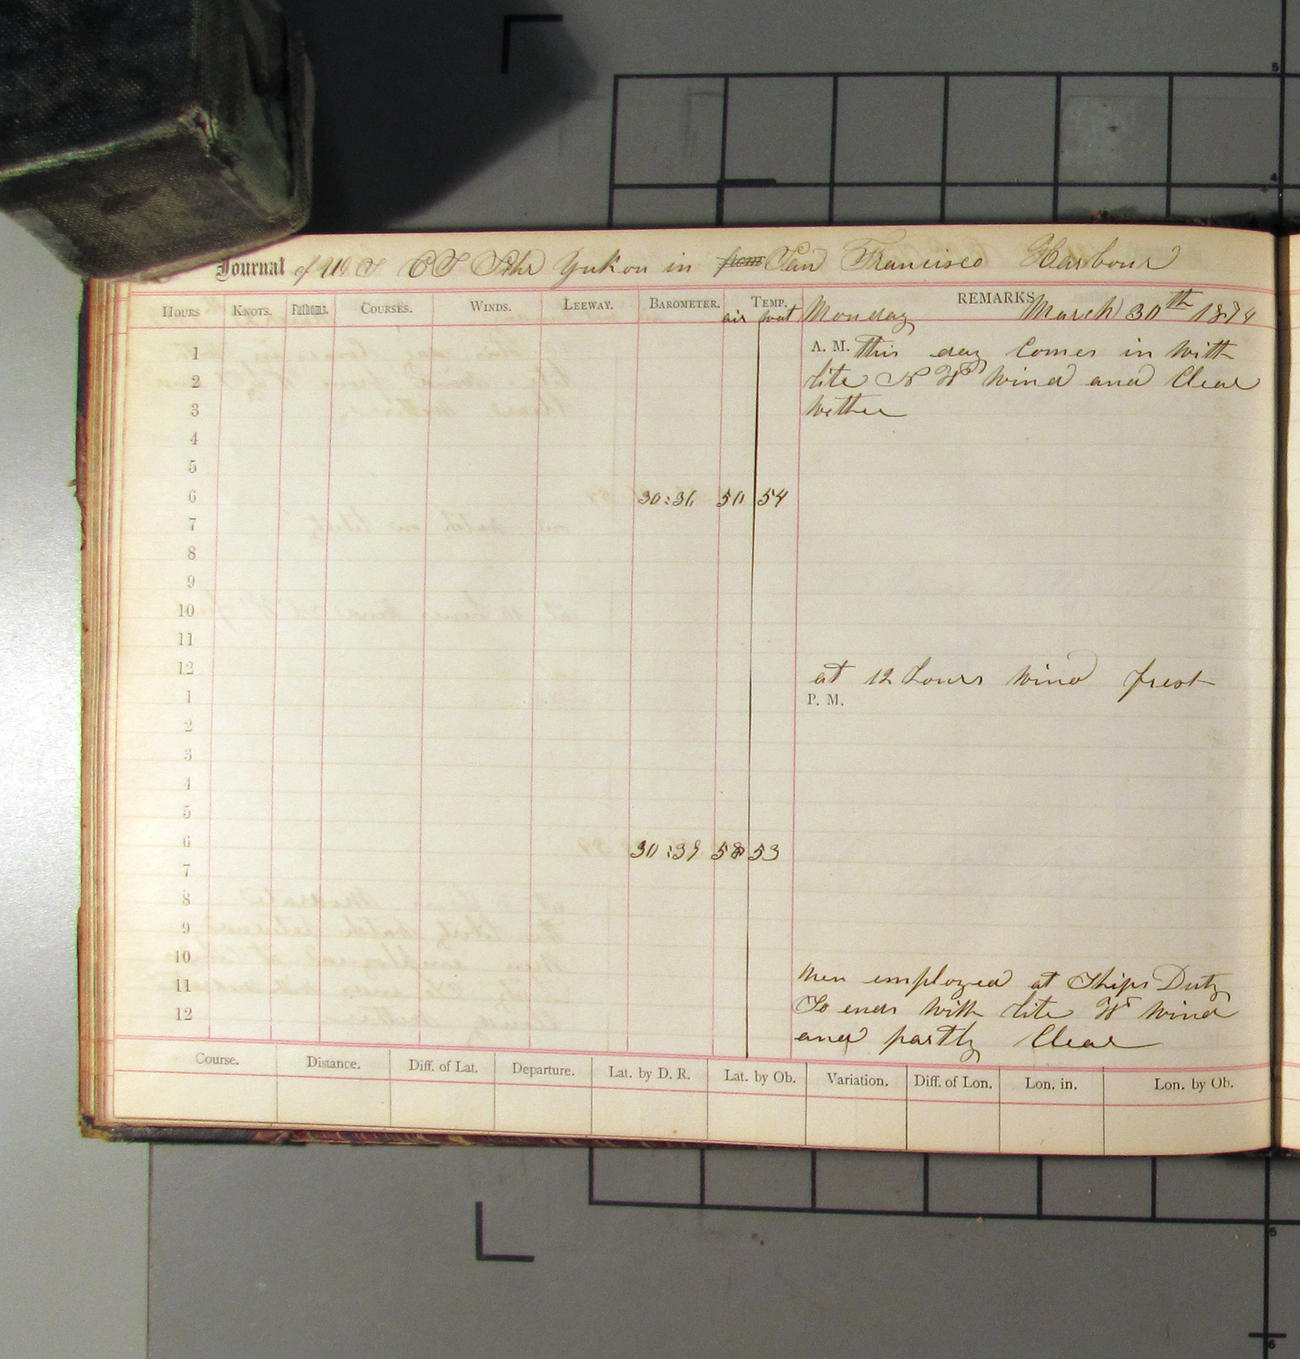 Journal of U S C S Schr Yukon in from San Francisco Harbour
HOURS KNOTS. Fathoms. COURSES. WINDS. LEEWAY. BAROMETER. TEMP. REMARKS
air wat Monday March 30th 1874
1 A. M. this day Comes in With
2 lite N W Wind and Clear
3 Wether
4
5
6 30:31 50 54
7
8
9
10
11
12 at 12 hours Wind fresh
1 P. M.
2
3
4
5
6 30:39 58 53
7
8
9
10
11 Men employed at Ships Duty
12 So ends With lite W Wind
and partly Clear
Course. Distance. Diff. of Lat. Departure. Lat. by D. R. Lat. by Ob. Variation. Diff. of Lon. Lon. in. Lon. by Ob.